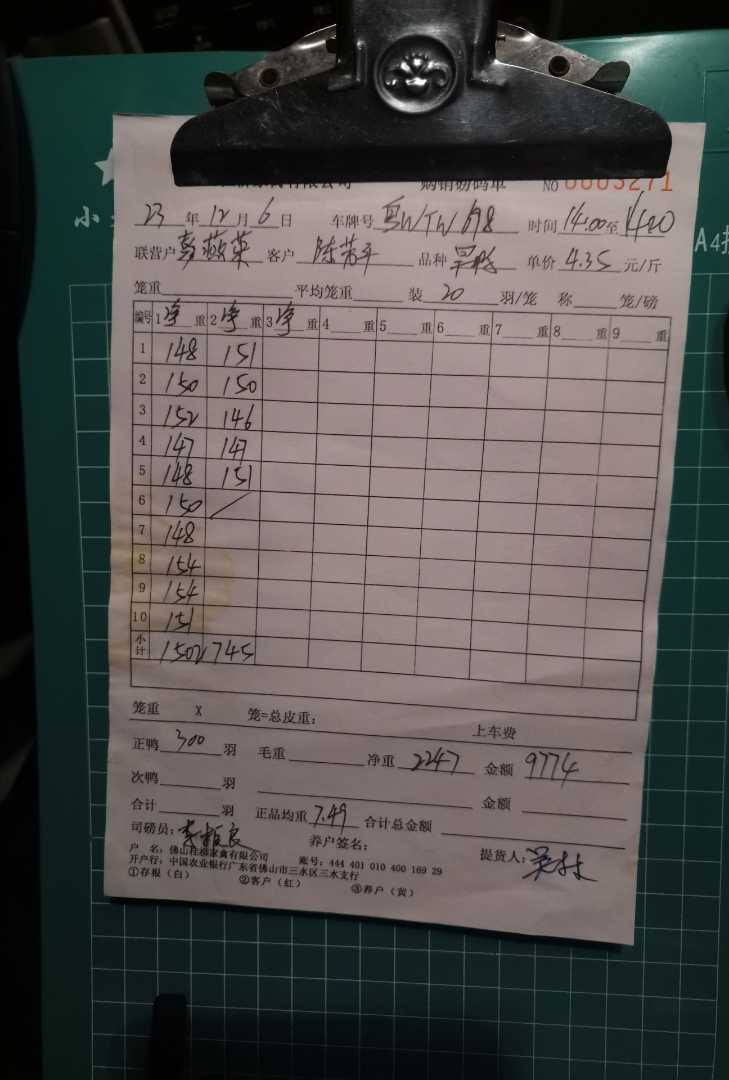 有限公司 购销磅码单 NO 0003271
23 年 12 月 6 日 车牌号 粤WTW198 时间 14.00 至 1420
联营户 客户 陈芳平 品种 单价 4.35 元/斤
笼重 平均笼重 装 20 羽/笼 称 笼/磅
编号 1 净 重 2 净 重 3 净 重 4 重 5 重 6 重 7 重 8 重 9 重
1 148 151
2 150 150
3 152 146
4 147 147
5 148 151
6 150 /
7 148
8 154
9 154
10 151
小计 1502 745
笼重 X 笼=总皮重: 上车费
正鸭 300 羽 毛重 净重 2247 金额 9774
次鸭 羽 金额
合计 羽 正品均重 7.49 合计总金额
司磅员: 养户签名: 提货人:
户 名: 佛山桂柳家禽有限公司 账号: 444 401 010 400 169 29
开户行: 中国农业银行广东省佛山市三水区三水支行
①存根(白) ②客户(红) ③养户(黄)
小
A4